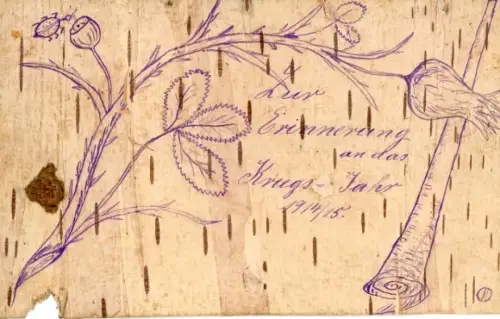 Zur
Erinnerung
an das
Kriegs-Jahr
1914/15.